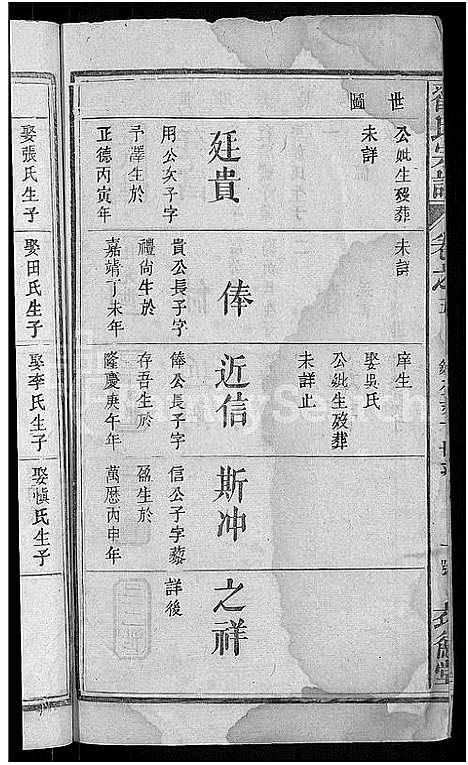 世圖
公妣生殁葬
未詳
廷貴
用公次子字
予澤生於
正德丙寅年
未詳
俸
貴公長子字
禮尚生於
嘉靖丁未年
庠生
娶吳氏
公妣生殁葬
未詳止
近信
俸公長子字
存吾生於
隆慶庚午年
斯冲
信公子字藜
劵生於
萬曆丙申年
之祥
詳後
娶張氏生子
娶田氏生子
娶李氏生子
娶慎氏生子
氏宗譜
卷之五